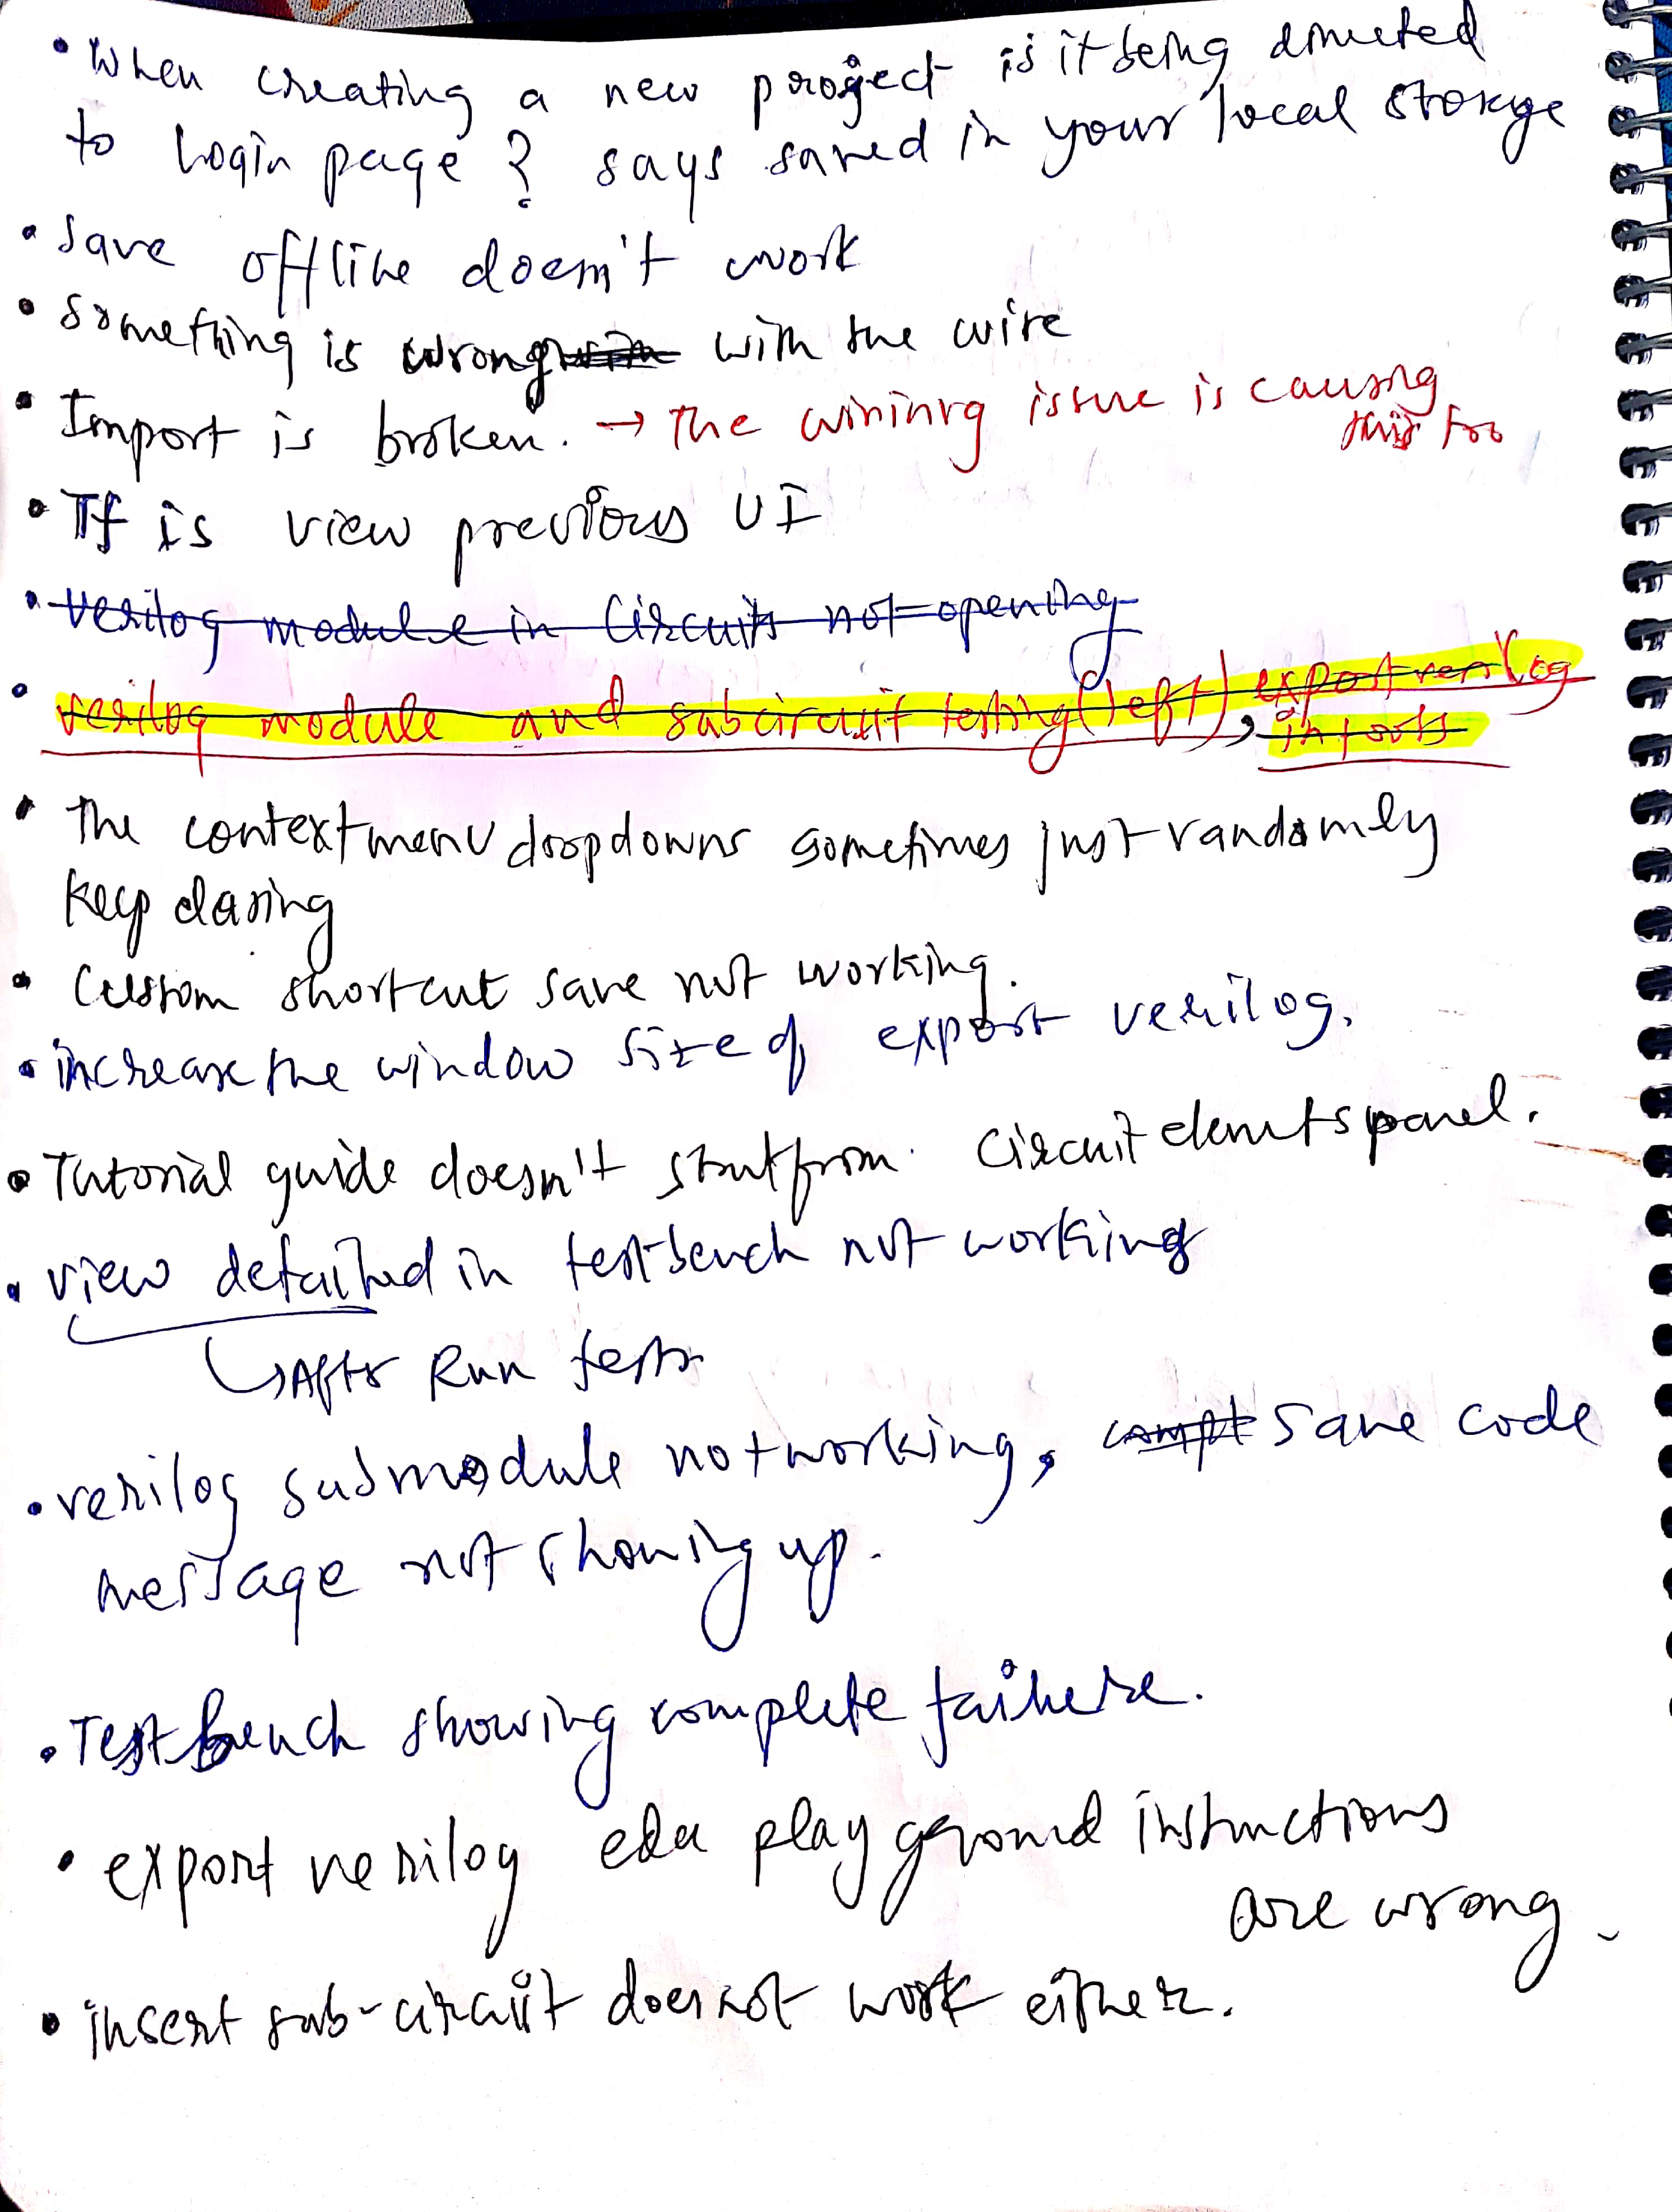 • When creating a new project is it being directed
to login page? says saved in your local storage
• Save offline doesn't work
• Something is wrong with the wire
• Import is broken. → The wiring issue is causing
this too
• If is view previous UI
• Verilog module in Circuits not opening
• verilog module and subcircuit testing (left), export verilog
in tools
• The context menu dropdowns sometimes just randomly
keep closing
• Custom shortcut save not working.
• increase the window size of export verilog.
• Tutorial guide doesn't start from circuit elements panel.
• view detailed in testbench not working
↳ After Run tests
• verilog submodule not working, save code
message not showing up.
• Testbench showing complete failure.
• export verilog eda playground instructions
are wrong.
• insert sub-circuit does not work either.